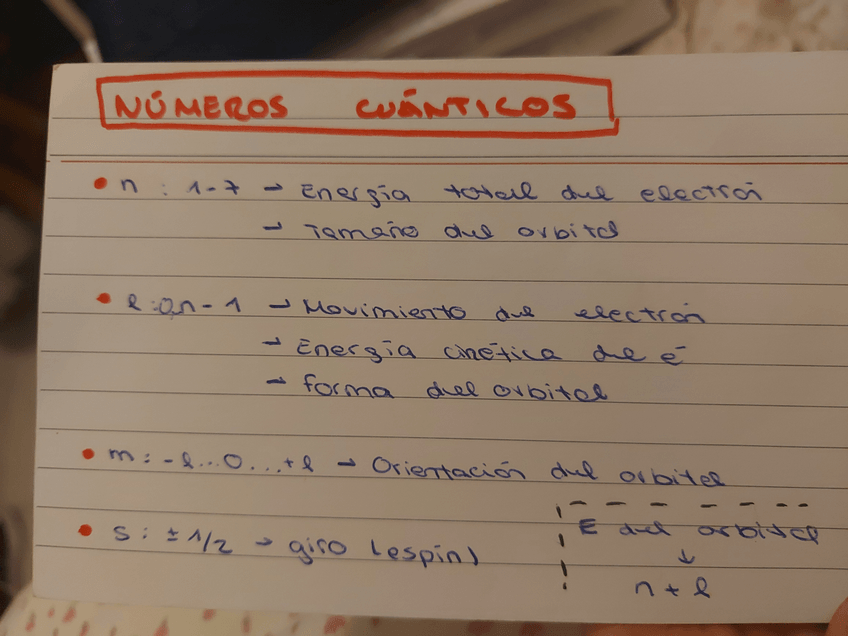 NÚMEROS CUÁNTICOS
• n : 1-7 → Energía total del electrón
→ Tamaño del orbital
• l : 0,n-1 → Movimiento del electrón
→ Energía cinética del e⁻
→ forma del orbital
• m : -l...0...+l → Orientación del orbital
• s : ± 1/2 → giro (espín)
E del orbital
↓
n + l